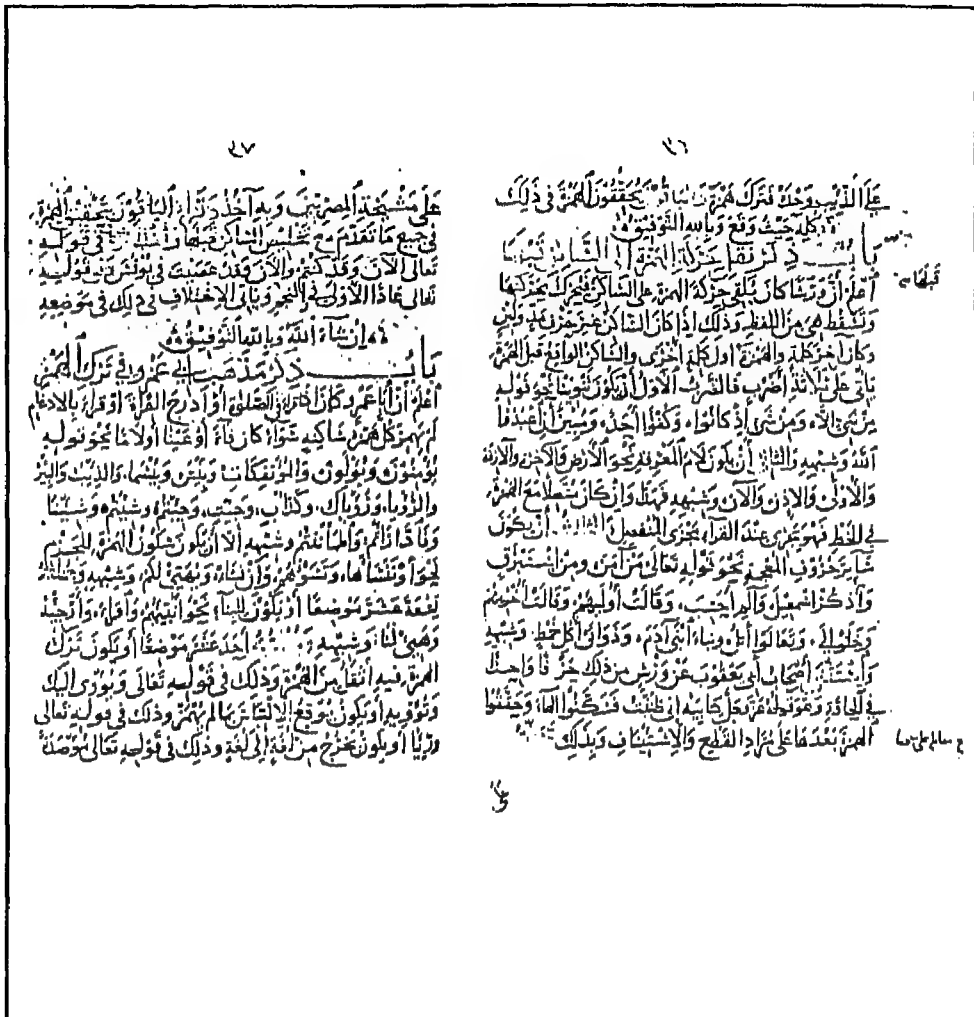 ٣٦
على الذيب وحده فترك همزه يحققون الهمزة في ذلك
كله حيث وقع وبالله التوفيق
باب ذكر نقل حركة الهمزة الى الساكن قبلها
اعلم أن ورشا كان يلقي حركة الهمزة على الساكن فيتحرك بحركتها
وتسقط هي من اللفظ وذلك إذا كان الساكن غير حرف مد ولين
وكان آخر كلمة والهمزة أول كلمة أخرى والساكن الواقع قبل الهمزة
يأتي على ثلاثة أضرب فالضرب الأول أن يكون تنوينا نحو قوله
من شيء الا ومن شيء إذ كانوا وكفوا احد ومبين أن اعبدوا
الله وشبهه والثاني أن يكون لام المعرفة نحو الأرض والآخرة والآزفة
والأولى والإذن والآن وشبهه فهذا وإن كان متصلا مع الهمزة
في الخط فهو يجري عند القراء مجرى المنفصل والثالث أن يكون
سائر حروف المعجم نحو قوله تعالى من آمن ومن استبرق
واذكر اسمعيل والم احسب وقالت أوليهم وقالت اخريهم
وخلوا إلى وتعالوا أتل ونبأ ابني آدم وذواتى أكل خمط وشبهه
واستثنى أصحاب أبي يعقوب عن ورش من ذلك حرفا واحدا
في الحاقة وهو قوله عز وجل كتابيه إني ظننت فسكنوا الهاء وحققوا
الهمزة بعدها على مراد القطع والاستيناف وبذلك
٣٧
على مشيخة المصريين وبه آخذ وقرأ الباقون بتحقيق الهمزة
في جميع ما تقدم مع تخليص الساكن قبلها في قوله
تعالى الآن وقد كنتم والآن وقد عصيت في يونس قوله
تعالى عادا الأولى في النجم ويأتي الاختلاف في ذلك في موضعه
إن شاء الله وبالله التوفيق
باب ذكر مذهب أبي عمرو في ترك الهمزة
اعلم أن أبا عمرو كان إذا قرأ في الصلوة أو أدرج القرآة أو قرأ بالإدغام
لم يهمز كل همزة ساكنة سواء كان فاء أو عينا أو لاما نحو قوله
يؤمنون ويؤلون والمؤتفكات وبئس وبئسما والذيب والبير
والرؤيا ورؤياك وكدأب وجئت وجئتم وشئتم وشئنا
وفادّارأتم واطمأننتم وشبهه إلا أن يكون سكون الهمزة للجزم
نحو أو ننسأها وتسؤهم وإن نشأ ويهيئ لكم وشبهه وجملته
تسعة عشر موضعا أو يكون للبناء نحو أنبئهم واقرأ وأرجئه
وهيئ لنا وشبهه أحد عشر موضعا أو يكون ترك
الهمزة فيه أثقل من الهمزة وذلك في قوله تعالى وتؤوى إليك
وتؤويه أو يكون يوقع الالتباس بما لم يهمز وذلك في قوله تعالى
ورئيا أو يكون يخرج من لغة إلى لغة وذلك في قوله تعالى موصدة